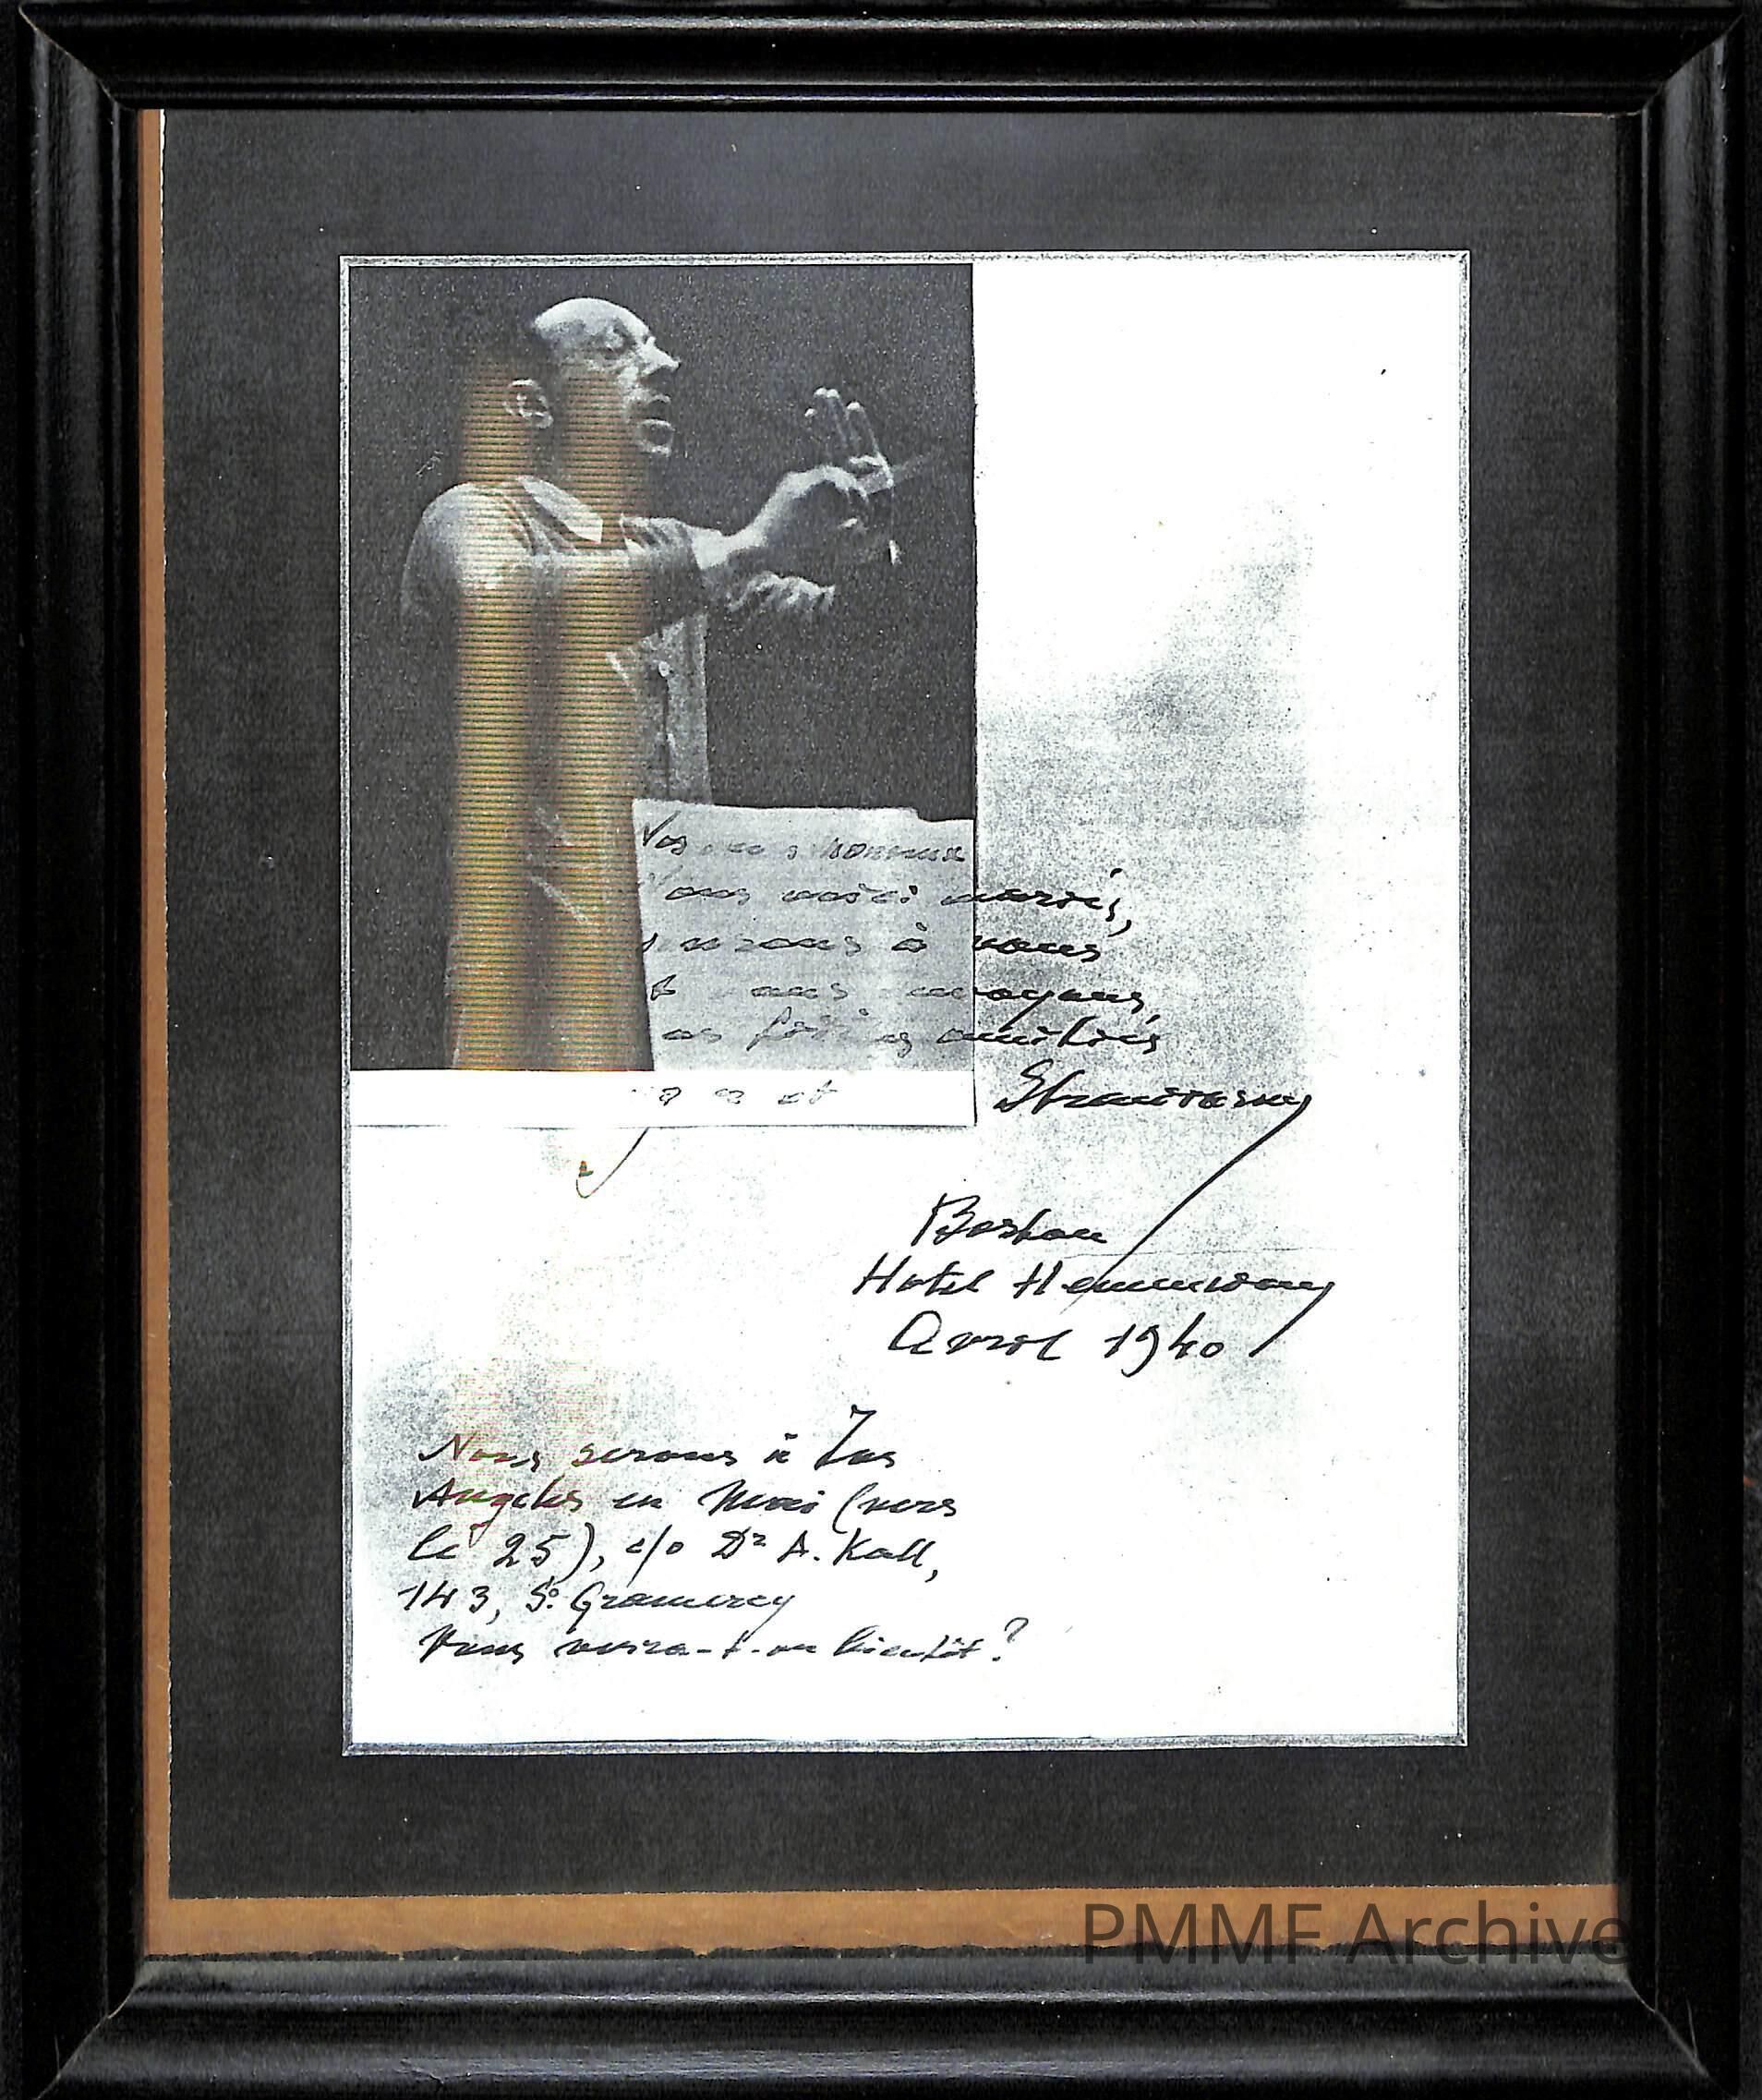 Vous voici mariés,
pensons à vous
vous envoyons,
amitiés
Strawinsky
Boston
Hotel Hemenway
Avril 1940
Nous serons à Los
Angeles en Mai (vers
le 25), c/o Dr A. Kall,
143, So. Gramercy
Vous verra-t-on bientôt?
PMMF Archive